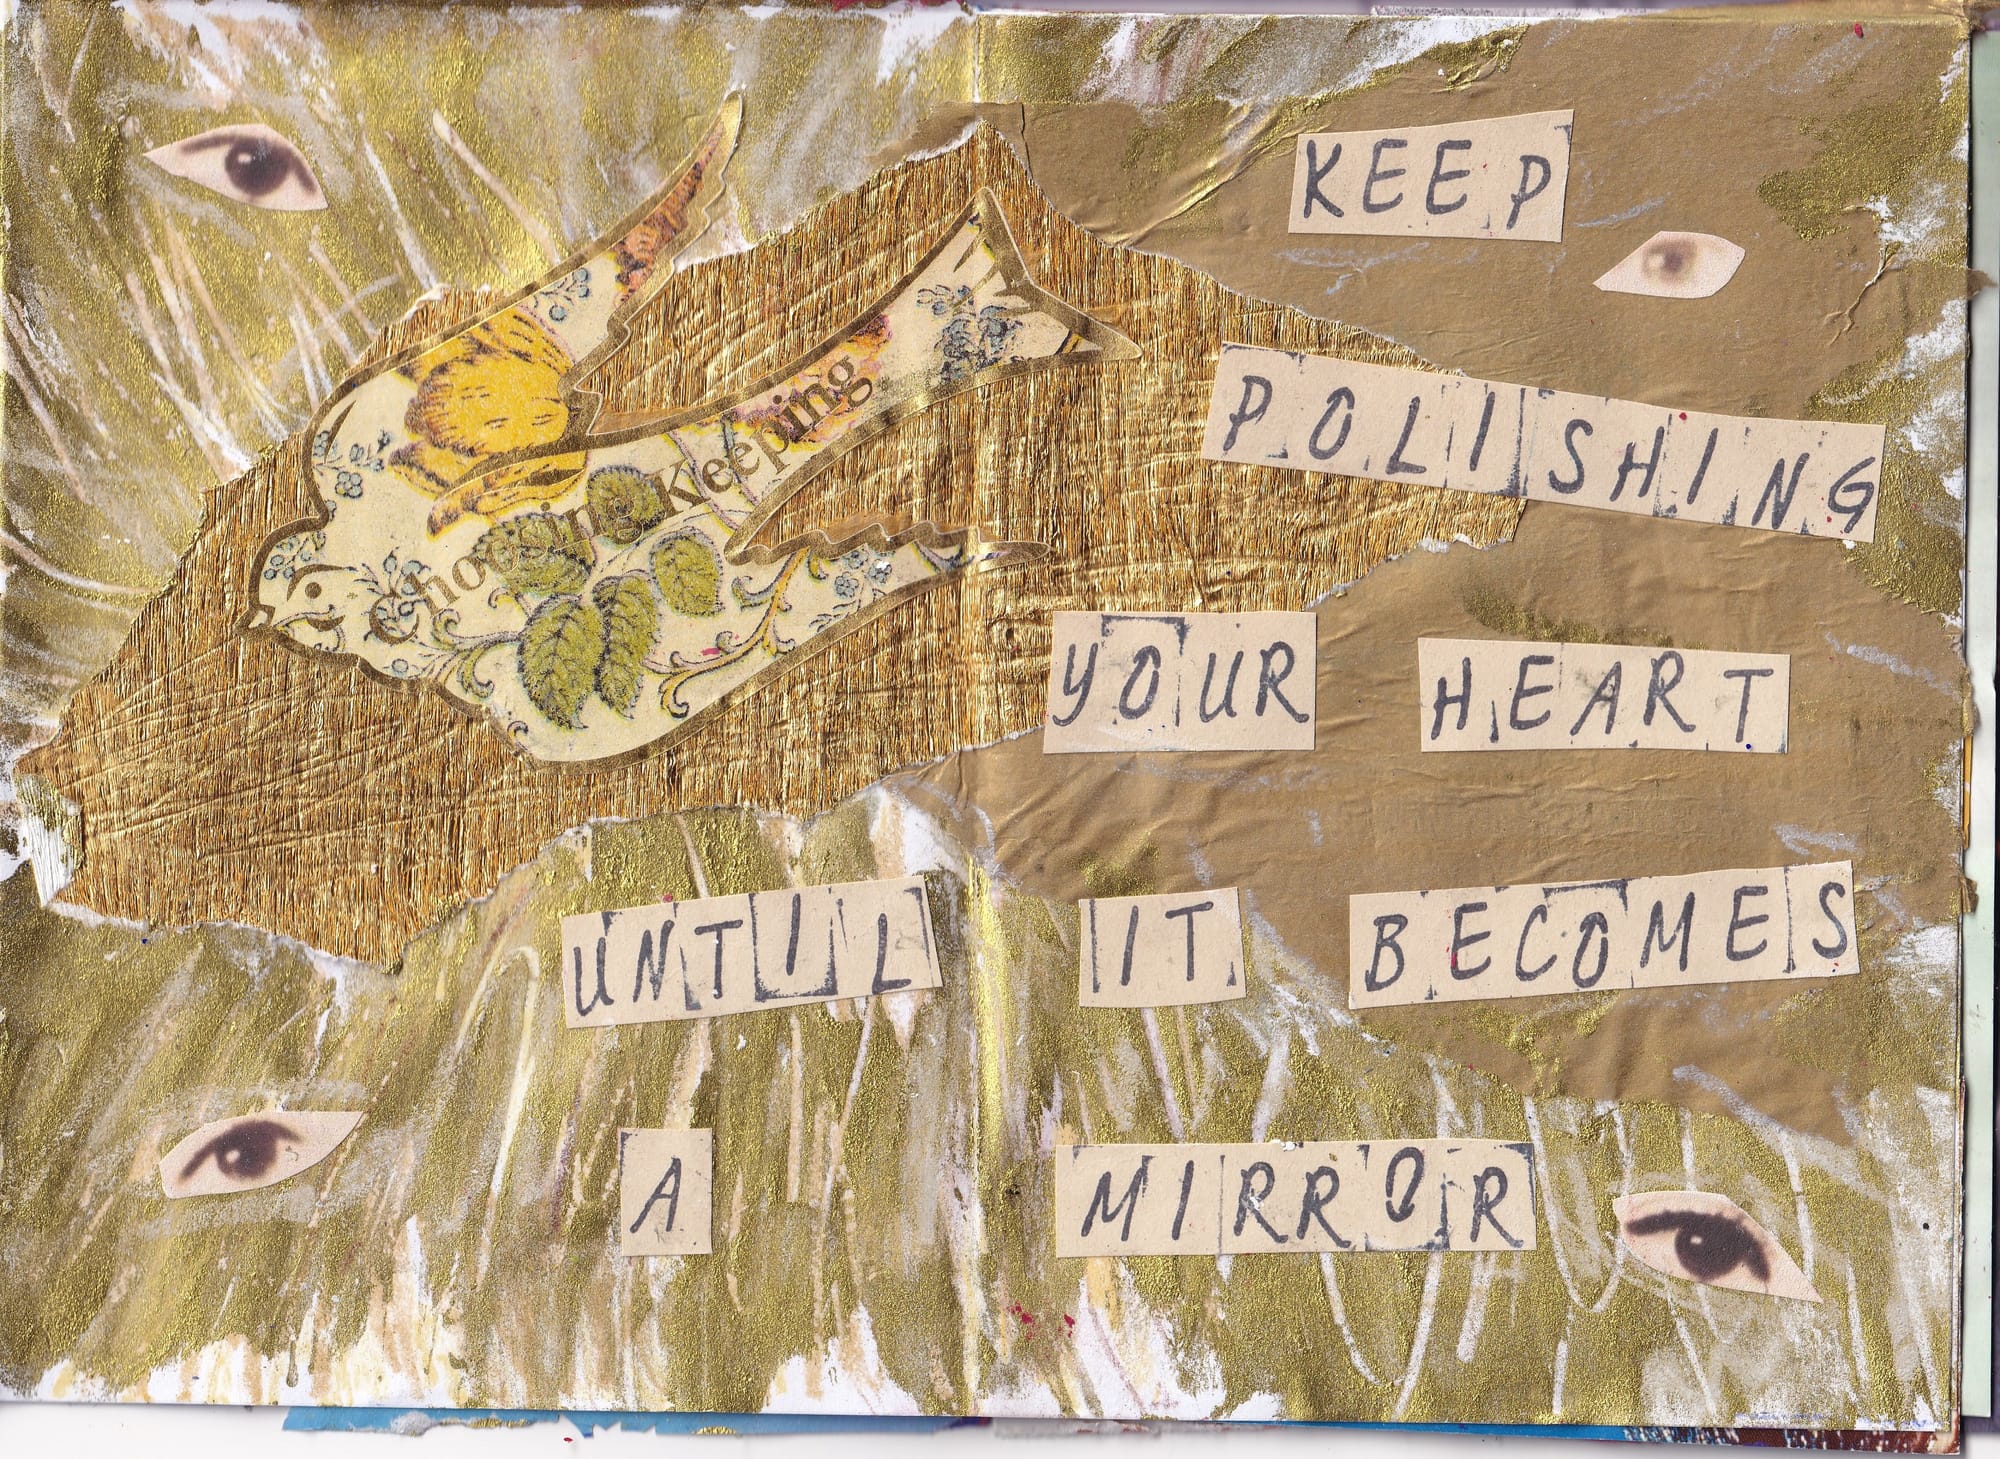 Choosing Keeping
KEEP
POLISHING
YOUR HEART
UNTIL IT BECOMES
A MIRROR